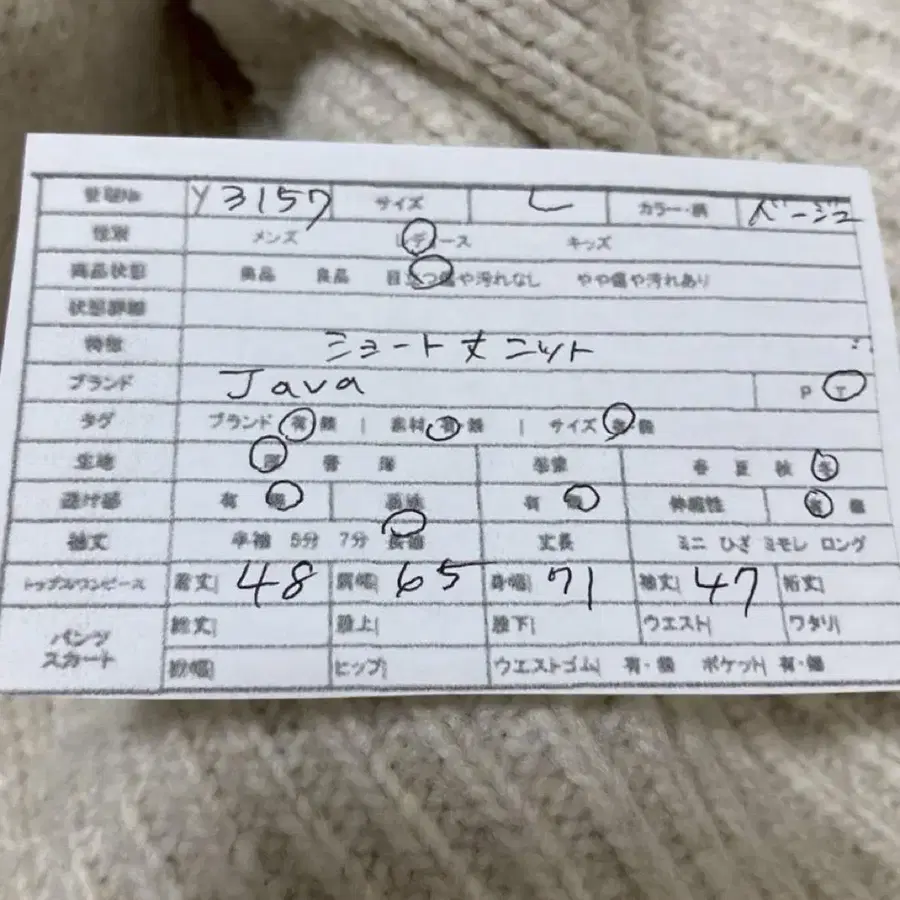 管理No Y3157 サイズ L カラー・柄 ベージュ
性別 メンズ レディース キッズ
商品状態 美品 良品 目立つ傷や汚れなし やや傷や汚れあり
状態詳細
特徴 ショート丈ニット
ブランド Java P T
タグ ブランド 有 無 | 素材 有 無 | サイズ 有 無
生地 厚 普 薄 季節 春 夏 秋 冬
透け感 有 無 裏地 有 無 伸縮性 有 無
袖丈 半袖 5分 7分 長袖 丈長 ミニ ひざ ミモレ ロング
トップス/ワンピース 着丈| 48 肩幅| 65 身幅| 71 袖丈| 47 裄丈|
パンツ スカート 総丈| 股上| 股下| ウエスト| ワタリ|
裾幅| ヒップ| ウエストゴム| 有・無 ポケット| 有・無